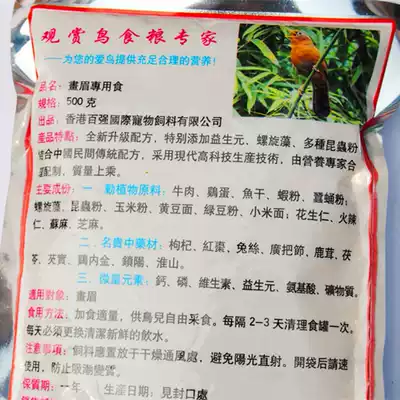 观赏鸟食粮专家
——为您的爱鸟提供充足合理的营养!
品名:畫眉專用食
规格:500克
出品:香港百强國際寵物飼料有限公司
產品特點:全新升級配方,特别添加益生元、螺旋藻、多種昆蟲粉
結合中國民間傳統配方,采用現代高科技生産技術,由營養專家合
理配制,質量上乘。
主要成份:一、動植物原料:牛肉、鷄蛋、魚干、蝦粉、蠶蛹粉;
螺旋藻、昆蟲粉、玉米粉、黄豆面、緑豆粉、小米面;花生仁、火辣
仁、蘇麻、芝麻。
二、名貴中藥材:枸杞、紅棗、兔絲、廣把節、鹿茸、茯
苓、芡實、鷄内金、鎖陽、淮山。
三、微量元素:鈣、磷、維生素、益生元、氨基酸、礦物質。
適用對象:畫眉
食用方法:加食適量,供鳥兒自由采食。每隔2-3天清理食罐一次。
每天必須更换清潔新鮮的飲水。
注意事項:飼料應置放于干燥通風處,避免陽光直射。開袋后請速
使用,防止吸潮變質。
保質期:一年 生産日期:見封口處